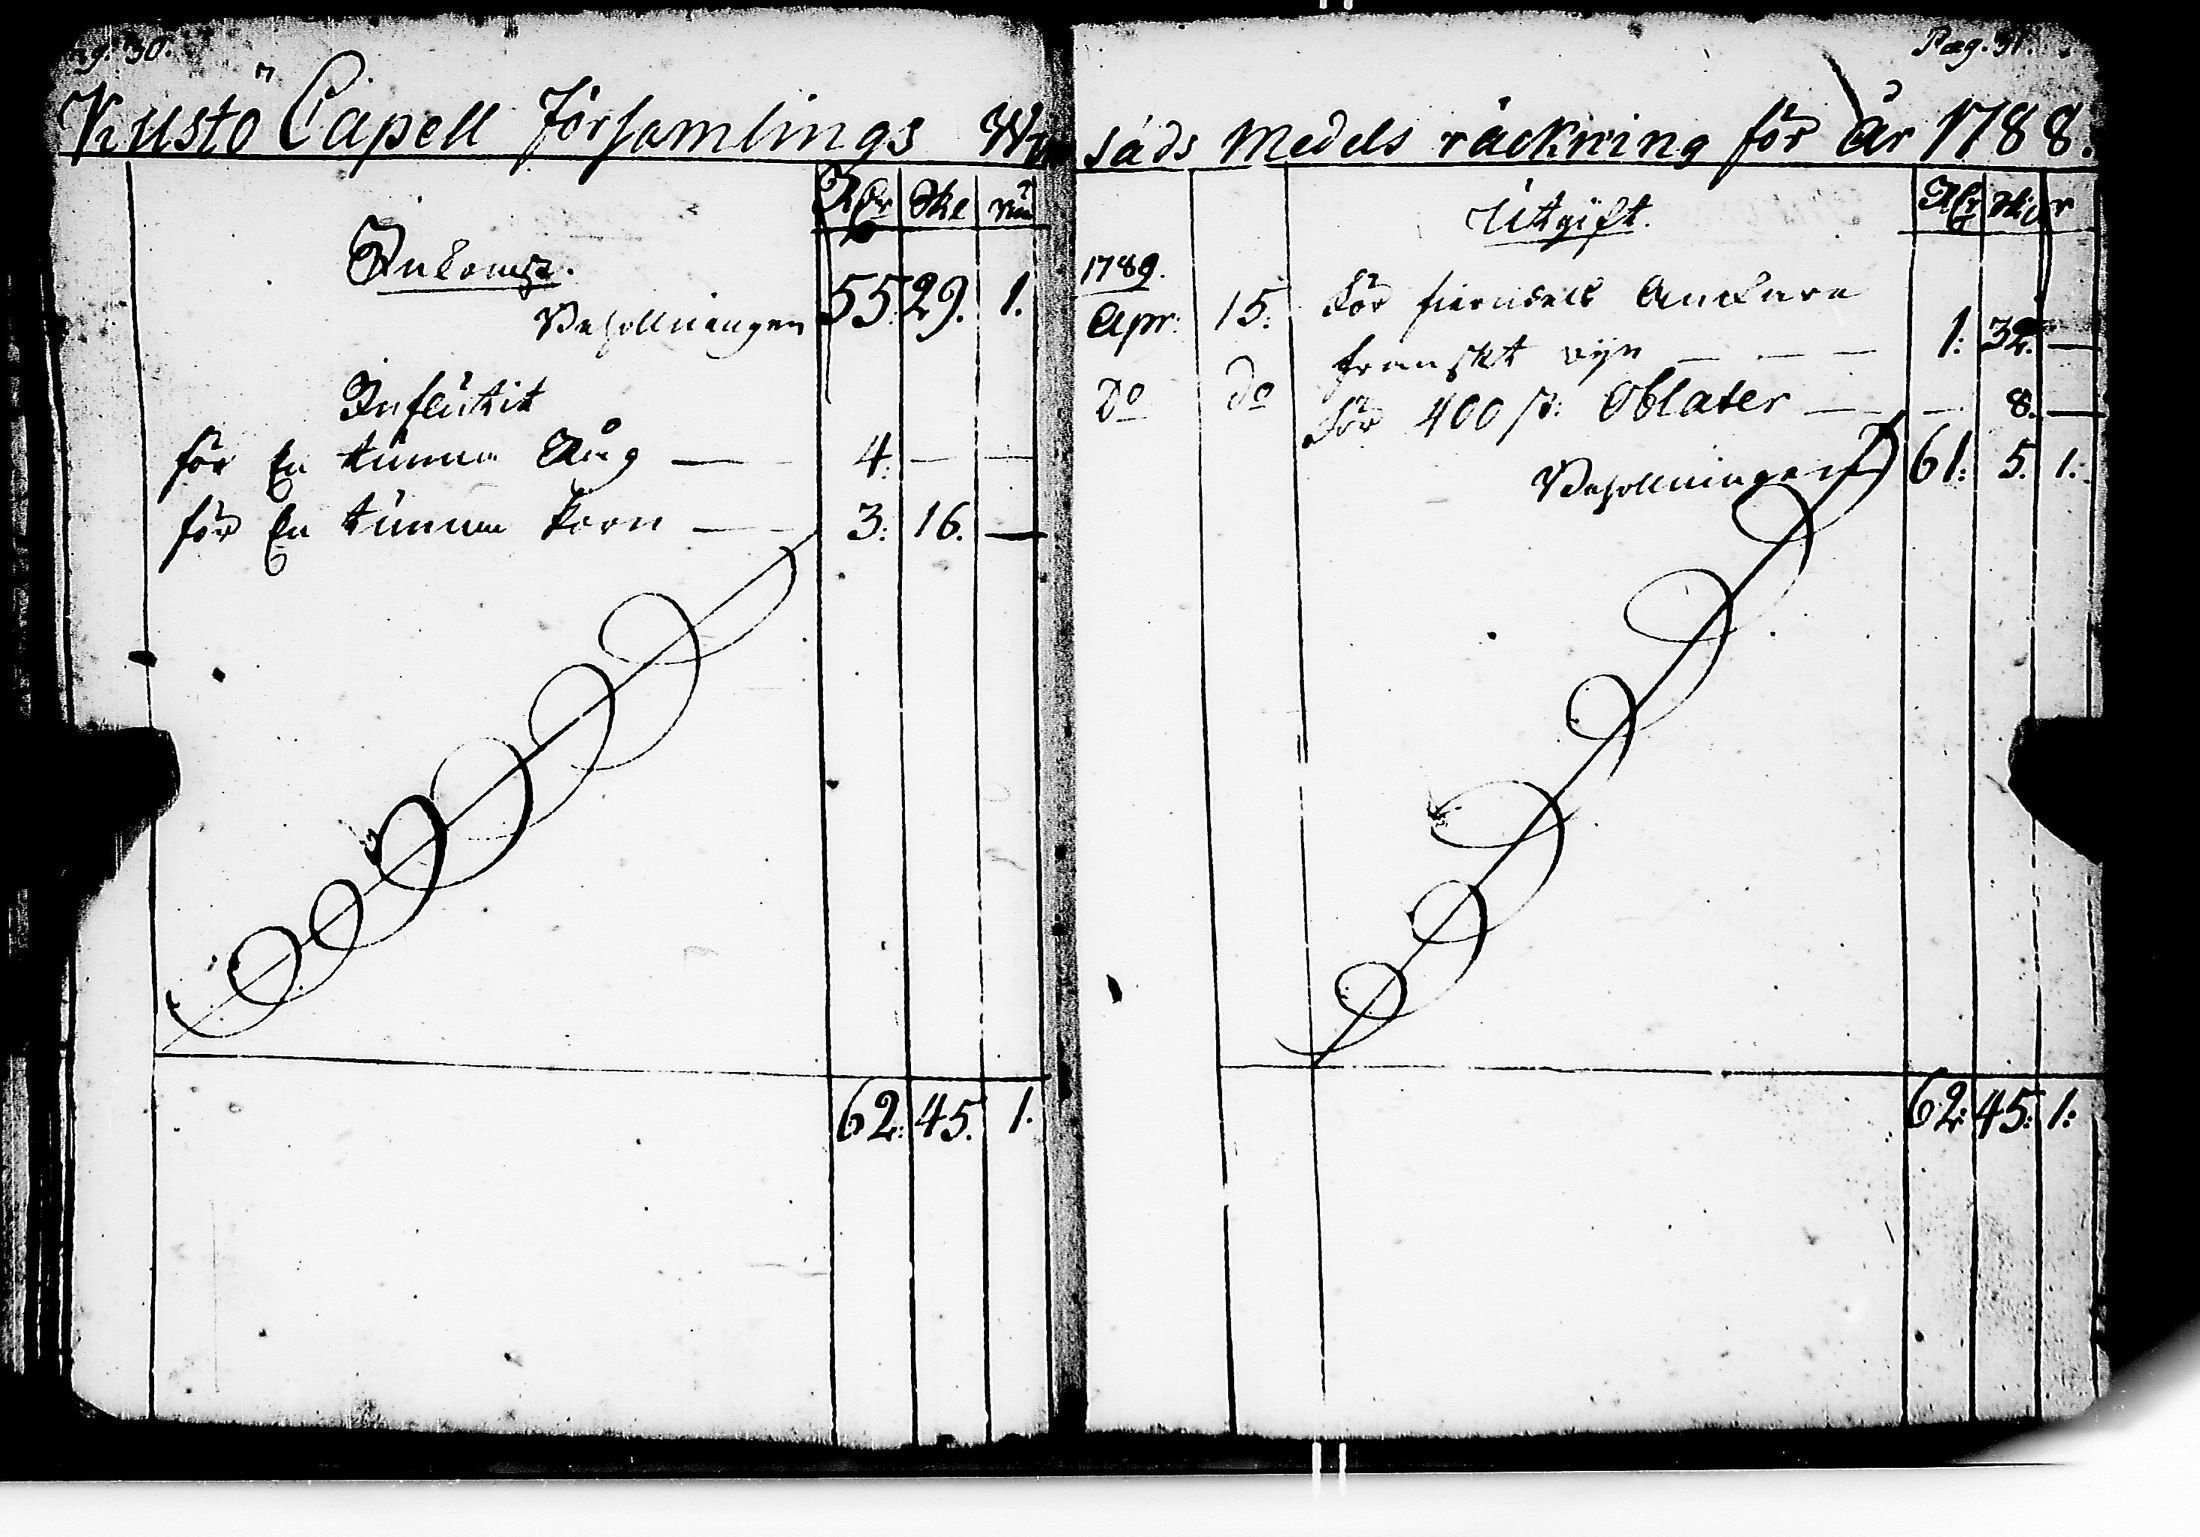 Pag. 30.
Kustö Capell Församlings Win
Rdr Skl run
Inkomst.
Behållningen 55. 29. 1.
Influtit
för En tunna Råg — 4. — —
för En tunna Korn — 3. 16. —
62. 45. 1.
Pag. 31.
säds Medels räckning för År 1788.
Utgift.
Rdr sk. r
1789.
Apr. 15. För fierndels Anckare
franskt vijn — — — 1. 32. —
do do För 400 st: Oblater — — 8. —
Behållningen 61. 5. 1.
62. 45. 1.